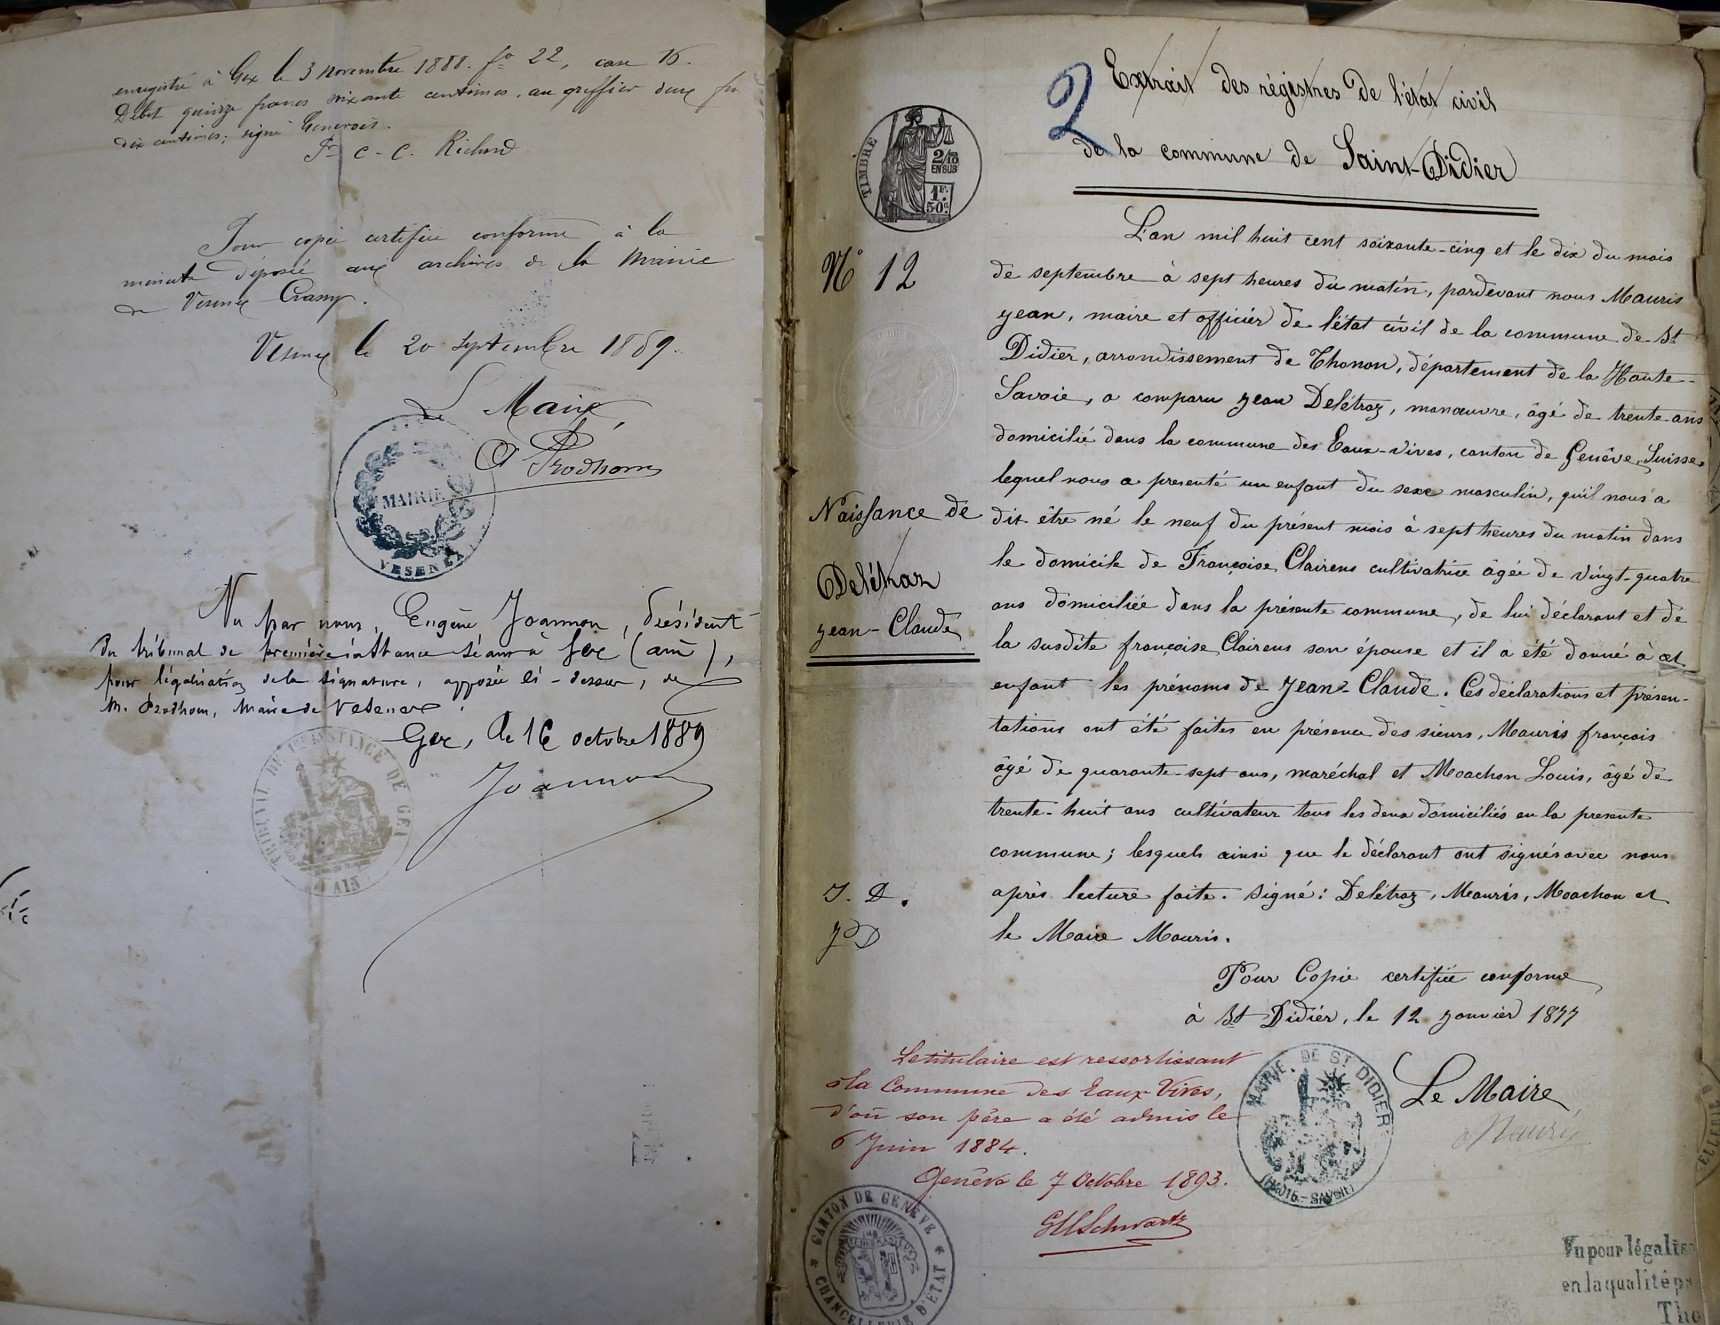 enregistré à Gex le 3 novembre 1888. fo 22, case 16.
Débet quinze francs soixante centimes. au greffier deux fr
dix centimes; signé Generois.
Pr C-C. Richard
Pour copie certifiée conforme à la
minute déposée aux archives de la Mairie
de Vesney-Crassy.
Vesney le 20 Septembre 1889.
Le Maire,
Prodhom
MAIRIE
VESENEX
Vu par nous, Eugène Joannon, Président
du tribunal de première instance séant à Gex (ain),
pour légalisation de la signature, apposée ci-dessus, de
M. Prodhom, Maire de Vesenex.
Gex, le 16 octobre 1889
Joannon
TRIBUNAL DE 1re INSTANCE DE GEX
AIN
2
Extrait des régistres de l'état civil
de la commune de Saint-Didier
TIMBRE
2/10
EN SUS
1F.
50c.
N° 12
L'an mil huit cent soixante-cinq et le dix du mois
de septembre à sept heures du matin, pardevant nous Mauris
Jean, maire et officier de l'état civil de la commune de St
Didier, arrondissement de Thonon, département de la Haute-
Savoie, a comparu Jean Delétraz, manœuvre, âgé de trente ans
domicilié dans la commune des Eaux-vives, canton de Genêve, Suisse,
lequel nous a presenté un enfant du sexe masculin, qu'il nous a
dit être né le neuf du présent mois à sept heures du matin dans
le domicile de Françoise Clairens cultivatrice âgée de vingt-quatre
ans domiciliée dans la présente commune, de lui déclarant et de
la susdite françoise Clairens son épouse et il a été donné à cet
enfant les prénoms de Jean-Claude. Ces déclarations et présen-
tations ont été faites en présence des sieurs, Mauris françois
âgé de quarante-sept ans, maréchal et Moachon Louis, âgé de
trente-huit ans cultivateur tous les deux domiciliés en la presente
commune; lesquels ainsi que le déclarant ont signés avec nous
après lecture faite. Signé: Delétraz, Mauris, Moachon et
le Maire Mauris.
Naissance de
Delétraz
Jean-Claude
J. D.
JD
Pour Copie certifiée conforme
à St Didier, le 12 Janvier 1877
Le Maire
Mauris
MAIRIE DE ST DIDIER
(HAUTE-SAVOIE)
Le titulaire est ressortissant
à la Commune des Eaux Vives,
d'où son père a été admis le
6 Juin 1884.
Genève le 7 Octobre 1893.
Schwartz
CANTON DE GENÈVE
CHANCELLERIE D'ETAT
Vu pour légalis
en la qualité p
Tho